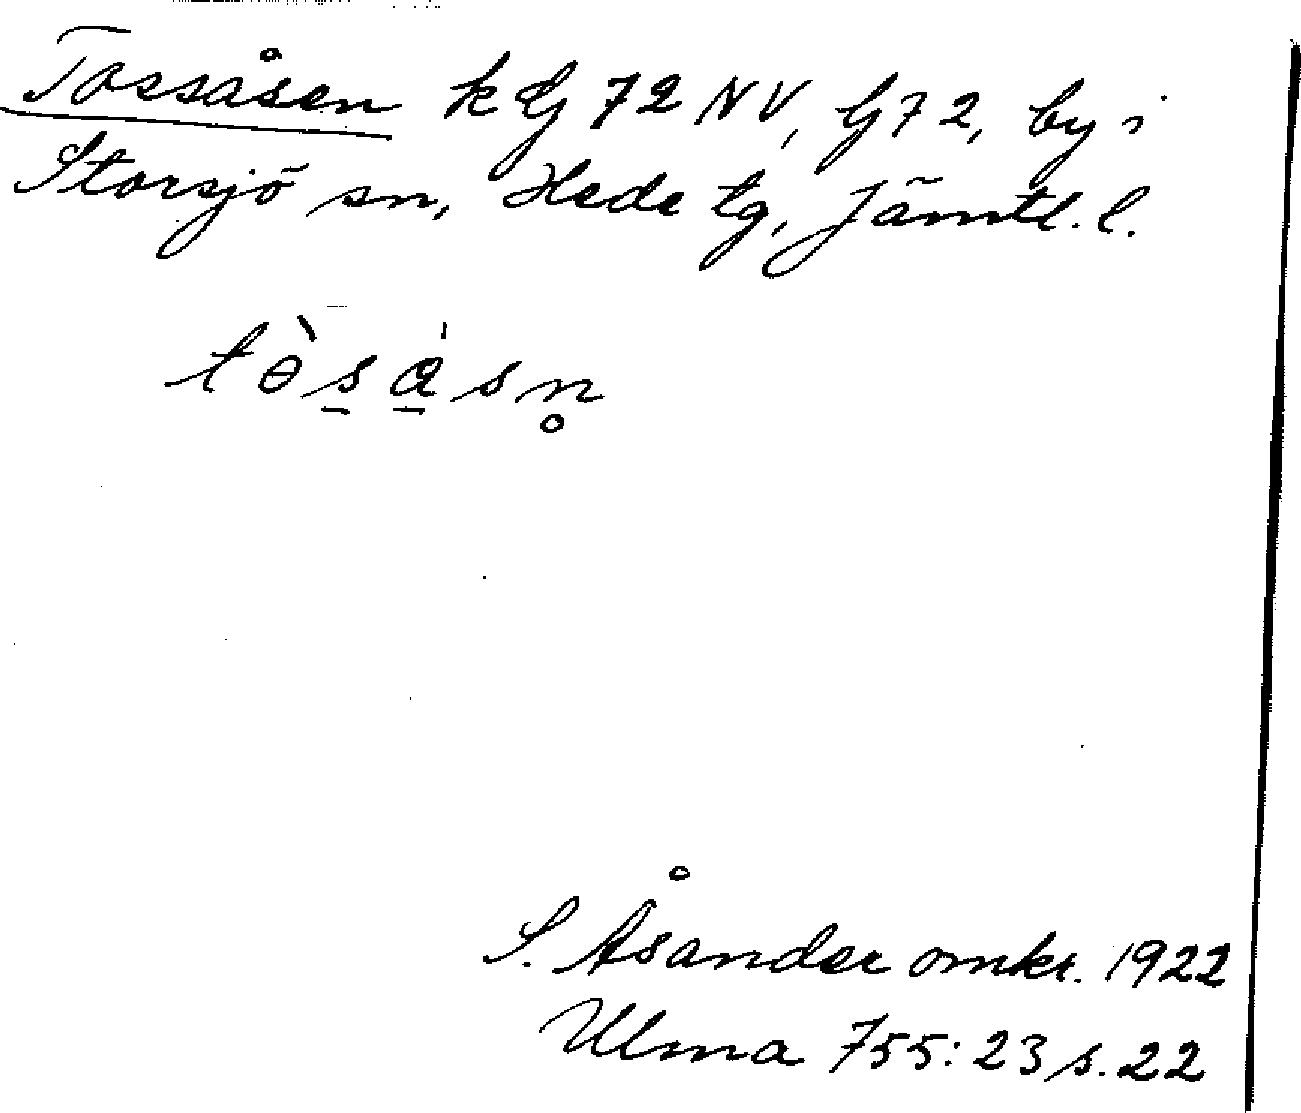 Tossåsen k Gj 72 NV, Gj 72, by i
Storsjö sn, Hede tg, Jämtl. l.
tɵ̀s̲a̲̍sn̥
S. Åsander omkr. 1922
Ulma 755:23 s. 22